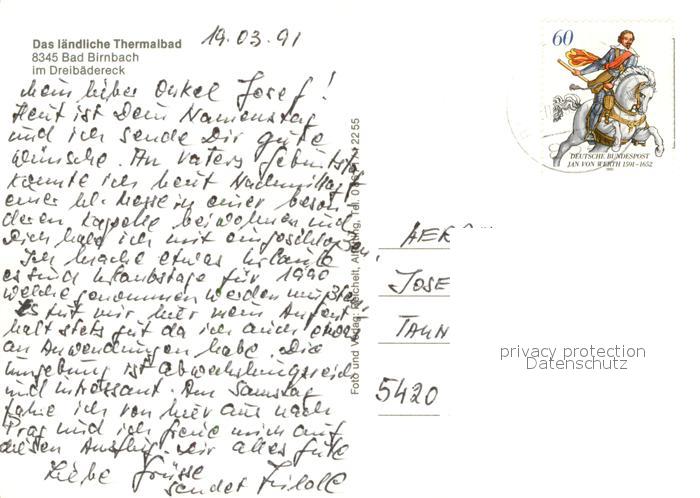 19.03.91
Das ländliche Thermalbad
8345 Bad Birnbach
im Dreibädereck
Mein lieber Onkel Josef!
Heut ist Dein Namenstag
und ich sende Dir gute
Wünsche. An Vaters Geburtstag
konnte ich heut Nachmittag
einer hl. Messe in einer beson-
deren Kapelle beiwohnen und
Dich hab ich mit eingeschlossen.
Ich mache etwas Urlaub
es sind Urlaubstage für 1990
welche genommen werden mußten.
Es tut mir hier mein Aufent-
halt stets gut da ich auch
an Anwendungen habe. Die
Umgebung ist abwechslungsreich
und intressant. Am Samstag
fahre ich von hier aus nach
Prag und ich freue mich auf
diesen Ausflug. Dir alles Gute
Liebe Grüsse
sendet
Foto und Verlag: Reichelt, Tel. 22 55
60
DEUTSCHE BUNDESPOST
JAN VON WERTH 1591-1652
HER
JOSE
TANN
5420
privacy protection
Datenschutz